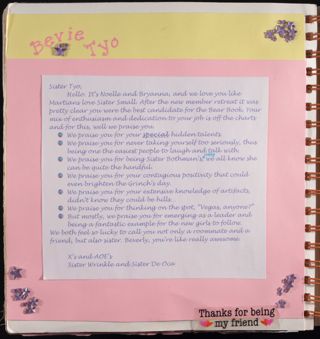 Bevie Tyo
Sister Tyo,
Hello. It's Noelle and Bryanna, and we love you like
Martians love Sister Small. After the new member retreat it was
pretty clear you were the best candidate for the Bear Book. Your
mix of enthusiasm and dedication to your job is off the charts
and for this, well we praise you.
We praise you for your special hidden talents.
We praise you for never taking yourself too seriously, thus
being one the easiest people to laugh and talk with.
We praise you for being Sister Bothwan's we all know she
can be quite the handful.
We praise you for your contagious positivity that could
even brighten the Grinch's day.
We praise you for your extensive knowledge of artifacts,
didn't know they could be hills.
We praise you for thinking on the spot, "Vegas, anyone?"
But mostly, we praise you for emerging as a leader and
being a fantastic example for the new girls to follow.
We both feel so lucky to call you not only a roommate and a
friend, but also sister. Beverly, you're like really awesome.
X's and AOE's
Sister Wrinkle and Sister De Oca
Thanks for being
my friend